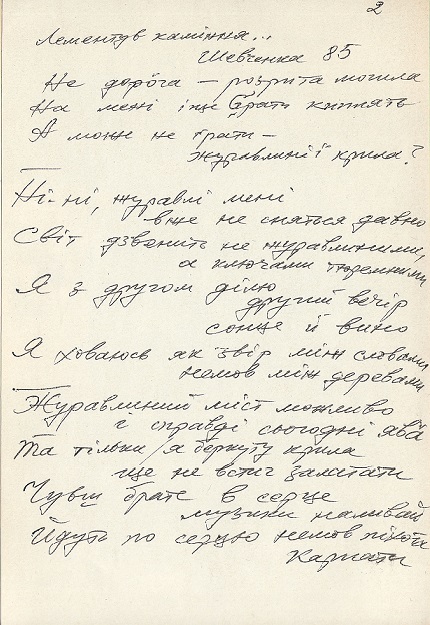 2
Лементув каміння...
Шевченка 85
Не дорога — розрита могила
На мені іще ґрати кипять
А може не ґрати —
журавлині крила?
Ні-ні, журавлі мені
вже не сняться давно
Світ дзвонить не журавлиними,
а ключами тюремними
Я з другом ділю
другий вечір
сонце й вино
Я ховаюсь як звір між словами
немов між деревами
Журавлиний міст можливо
і справді сьогодні ява
Та тільки я беркуту крила
ще не встиг залатати
Чуєш брате в серце
музики наливай
Йдуть по серцю немов піхота
Карпати